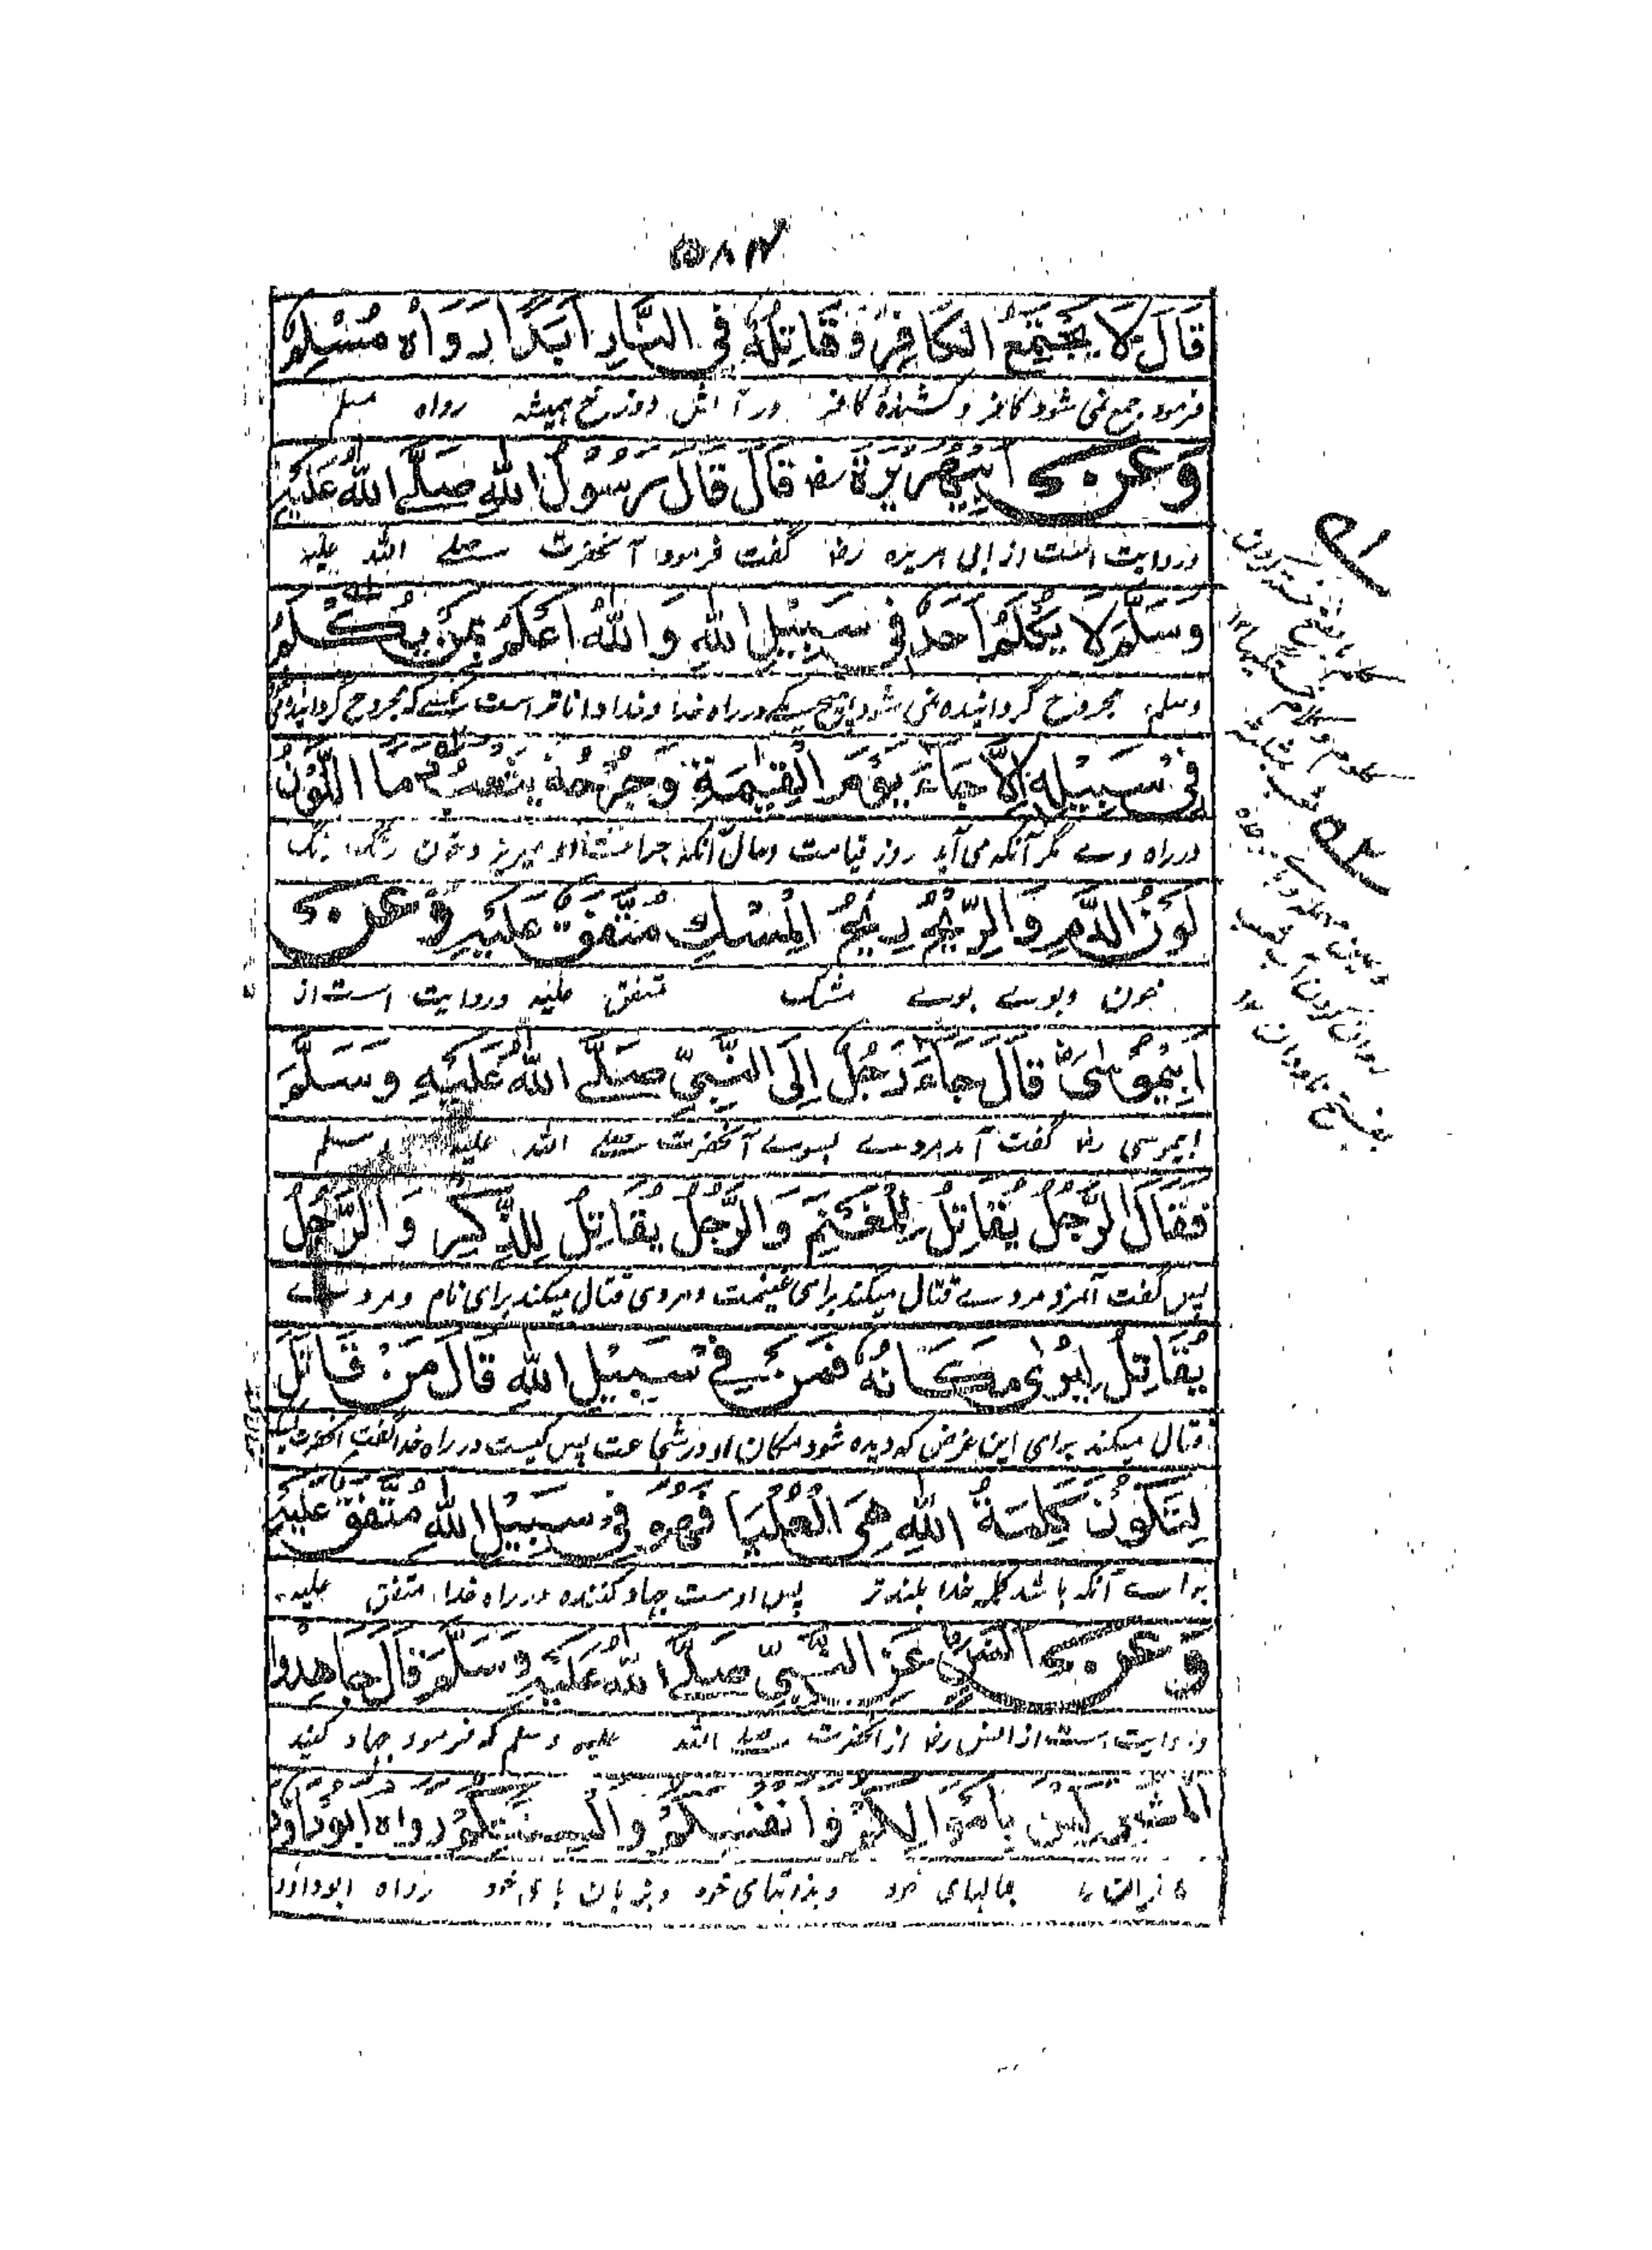 ۵۸۴
قَالَ لَا يَجْتَمِعُ الكَافِرُ وَقَاتِلُهُ فِي النَّارِ اَبَدًا رَوَاهُ مُسْلِمٌ
فرمود جمع نمی شود کافر و کشندهٔ کافر در آتش دوزخ همیشه رواه مسلم
وَعَنْ اَبِيْهُرَيْرَةَ رض قَالَ قَالَ رَسُوْلُ اللهِ صَلَّى اللهُ عَلَيْهِ
و روایت است از ابی هریره رض گفت فرمود آنحضرت صلے الله علیه
وَسَلَّمَ لَا يُكْلَمُ اَحَدٌ فِي سَبِيْلِ اللهِ وَاللهُ اَعْلَمُ بِمَنْ يُكْلَمُ
وسلم مجروح گردانیده نمی شود هیچ یکے در راه خدا و خدا داناتر است بکسے که مجروح گردانیده
فِي سَبِيْلِهِ اِلَّا جَاءَ يَوْمَ القِيٰمَةِ وَجُرْحُهُ يَثْعَبُ دَمًا اللَّوْنُ
در راه وے مگر آنکه می آید روز قیامت و حال آنکه جراحت او میریزد خون رنگ رنگ
لَوْنُ الدَّمِ وَالرِّيْحُ رِيْحُ المِسْكِ مُتَّفَقٌ عَلَيْهِ وَعَنْ
خون و بوے بوے مشک متفق علیه و روایت است از
اَبِيْمُوْسٰى رض قَالَ جَاءَ رَجُلٌ اِلَى النَّبِيِّ صَلَّى اللهُ عَلَيْهِ وَسَلَّمَ
ابیموسی رض گفت آمد مردے بسوے آنحضرت صلے الله علیه وسلم
فَقَالَ الرَّجُلُ يُقَاتِلُ لِلْمَغْنَمِ وَالرَّجُلُ يُقَاتِلُ لِلذِّكْرِ وَالرَّجُلُ
پس گفت آنمرد مردے قتال میکند برای غنیمت و مردی قتال میکند برای نام و مردے
يُقَاتِلُ لِيُرٰى مَكَانُهُ فَمَنْ فِي سَبِيْلِ اللهِ قَالَ مَنْ قَاتَلَ
قتال میکند برای این غرض که دیده شود مکان او در شجاعت پس کیست در راه خدا گفت آنحضرت
لِتَكُوْنَ كَلِمَةُ اللهِ هِيَ الْعُلْيَا فَهُوَ فِي سَبِيْلِ اللهِ مُتَّفَقٌ عَلَيْهِ
براے آنکه باشد کلمه خدا بلندتر پس اوست جهاد کننده در راه خدا متفق علیه
وَعَنْ اَنَسٍ رض عَنِ النَّبِيِّ صَلَّى اللهُ عَلَيْهِ وَسَلَّمَ قَالَ جَاهِدُوا
و روایت است از انس رض از آنحضرت صلے الله علیه وسلم که فرمود جهاد کنید
المُشْرِكِيْنَ بِاَمْوَالِكُمْ وَاَنْفُسِكُمْ وَاَلْسِنَتِكُمْ رَوَاه اَبُوْدَاوُد
کافران را بمالهای خود و بذاتهای خود و بزبان های خود رواه ابوداود